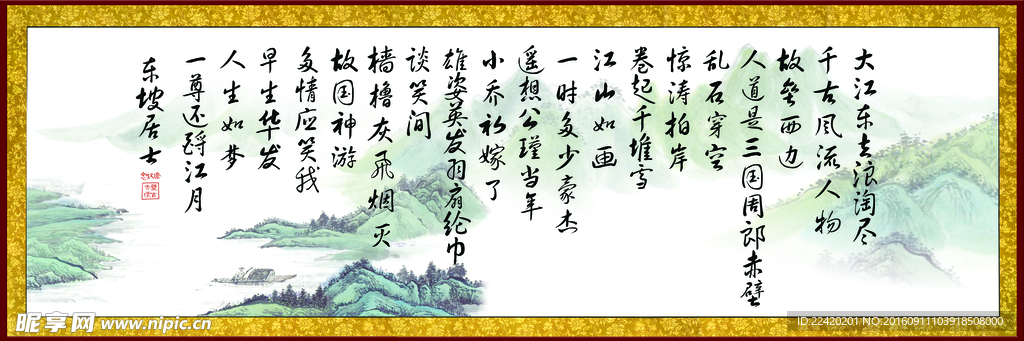 大江东去浪淘尽
千古风流人物
故垒西边
人道是三国周郎赤壁
乱石穿空
惊涛拍岸
卷起千堆雪
江山如画
一时多少豪杰
遥想公瑾当年
小乔初嫁了
雄姿英发羽扇纶巾
谈笑间
樯橹灰飞烟灭
故国神游
多情应笑我
早生华发
人生如梦
一尊还酹江月
东坡居士
昵享网 www.nipic.cn
ID:22420201 NO:20160911103918508000